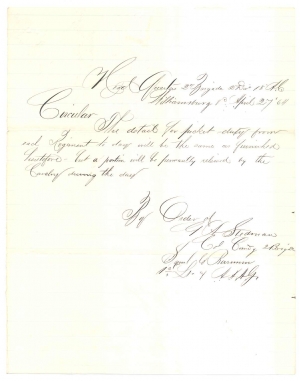 Head Quarters 2d Brigade 2 Div 18 A.C.
Williamsburg Va April 27 '64
Circular
The detail for picket duty from
each Regiment to day will be the same as furnished
heretofore but a portion will be
relieved by the
Cavalry during the day
By Order of
Stedman
Col Comdg 2 Brigade
Saml
1st Lt & A.A.A.G.